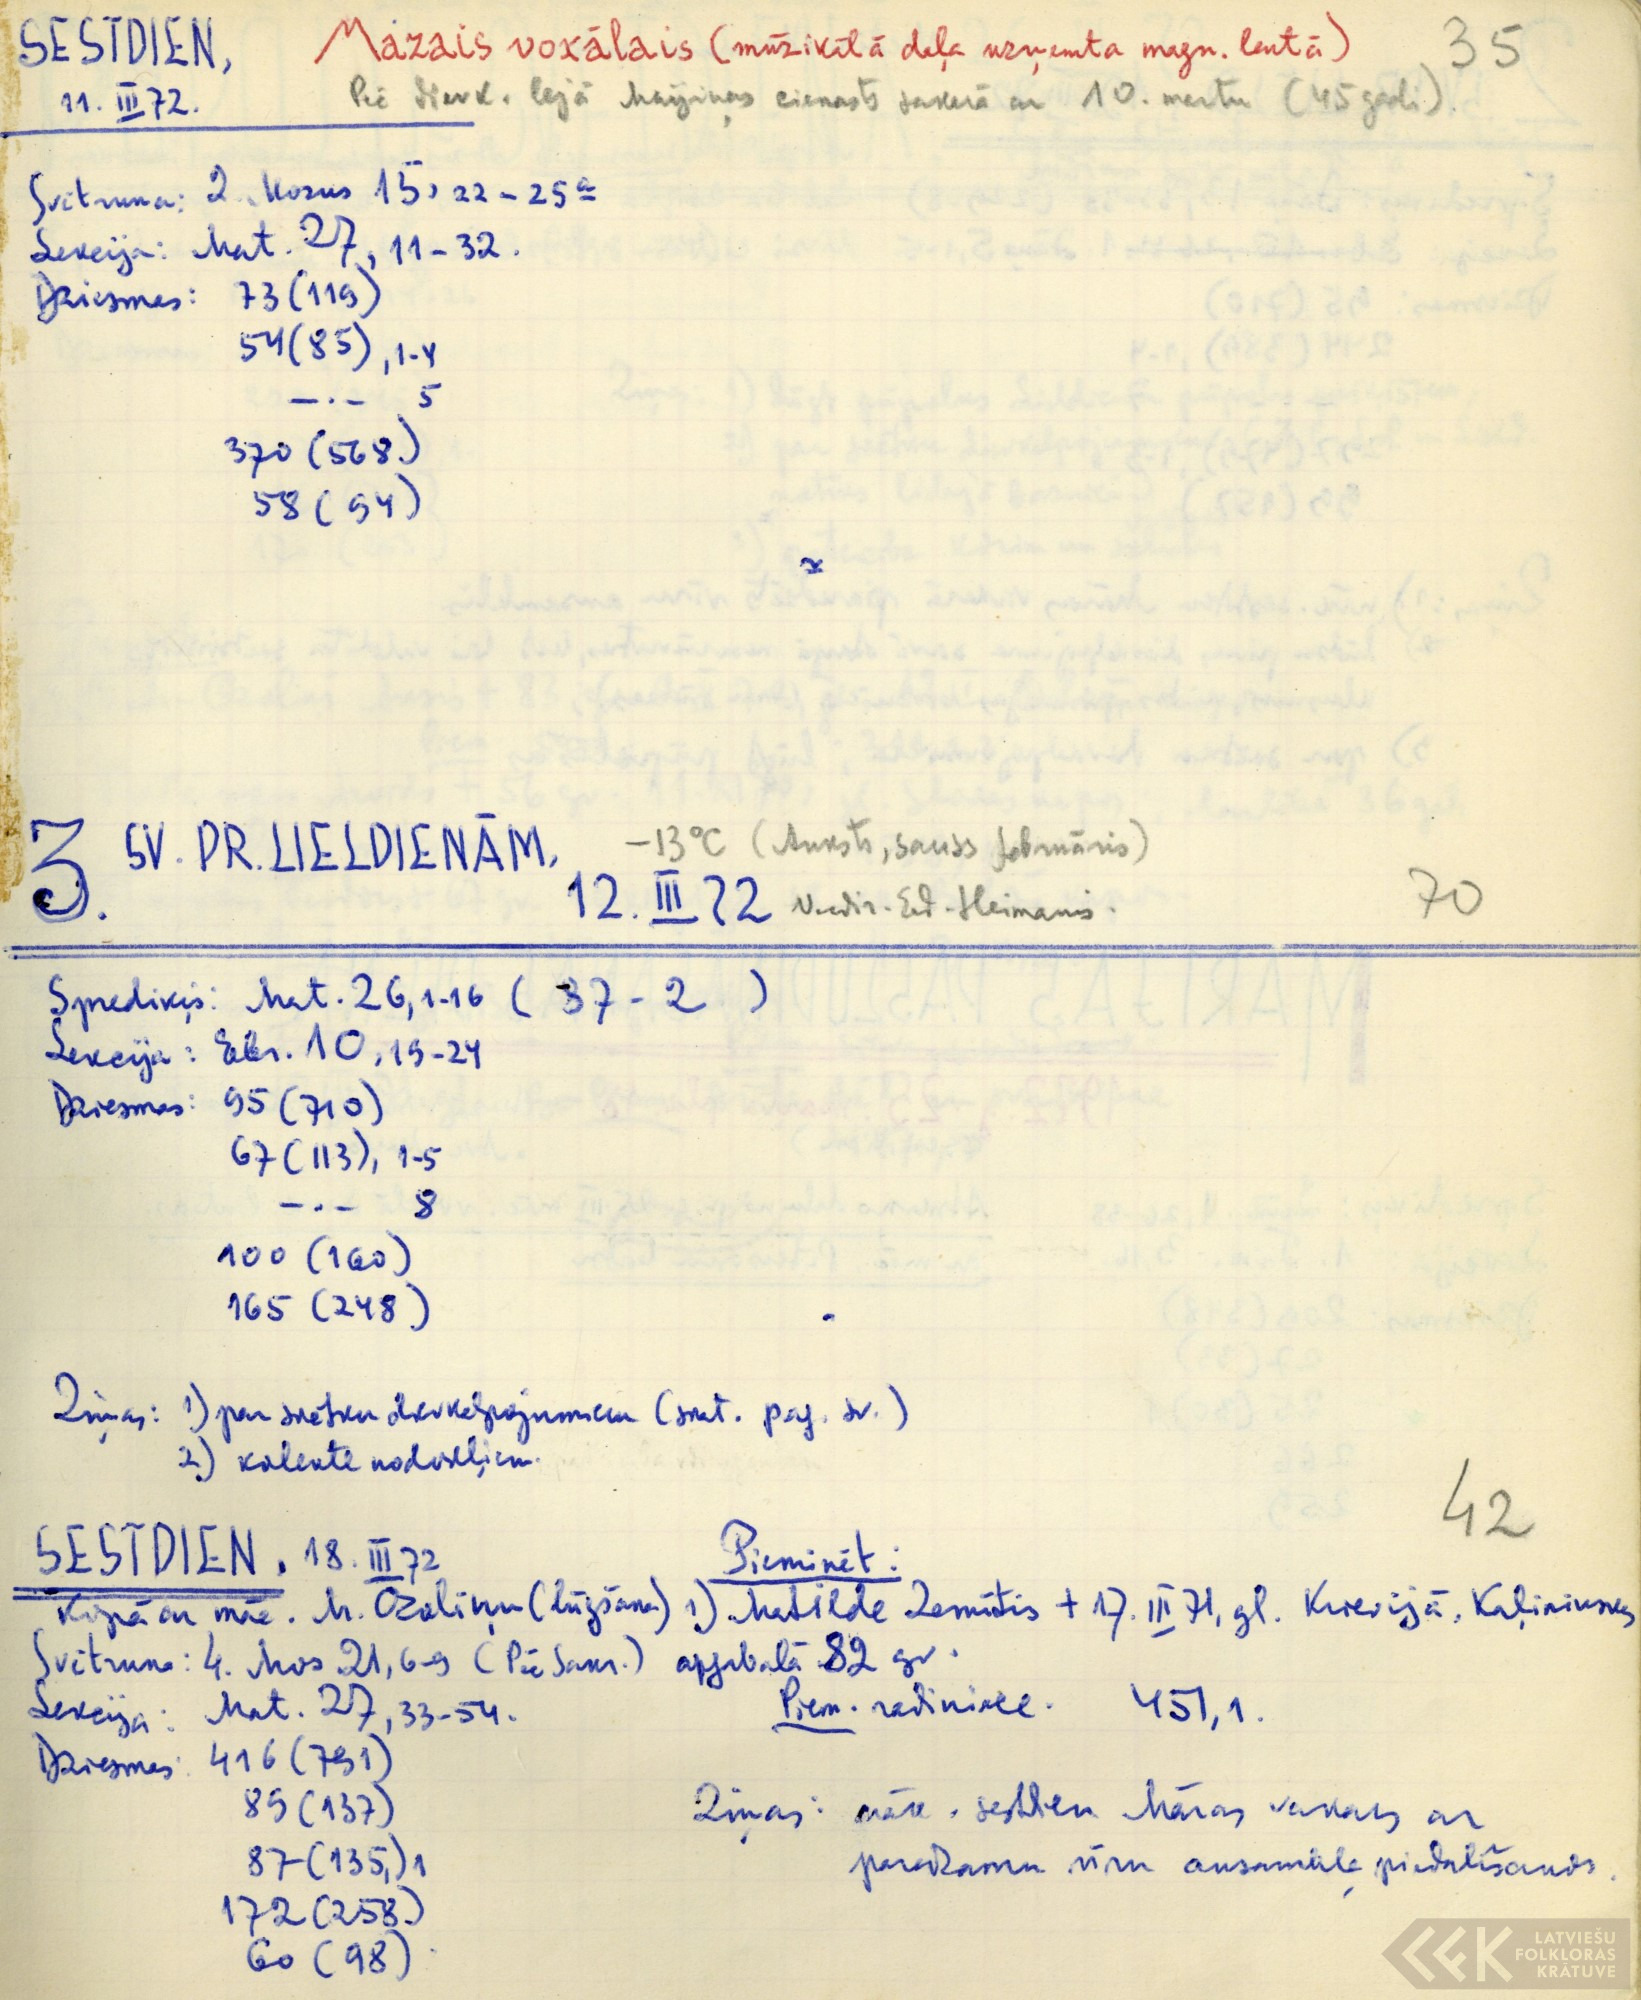 SESTDIEN, Mazais vokālais (mūzikālā daļa uzņemta magn. lentā) 35
11. III 72. Pēc dievk. lejā Maijiņas cienasts sakarā ar 10. martu (45 gadi).
Svētruna: 2. Mozus 15, 22-25a
Lekcija: Mat. 27, 11-32.
Dziesmas: 73 (119)
54 (85), 1-4
-.- 5
370 (568.)
58 (94)
3. SV. PR. LIELDIENĀM, -13°C (Auksts, sauss februāris)
12. III 72 V-edir. Ed. Heimanis. 70
Sprediķis: Mat. 26, 1-16 (37-2)
Lekcija: Ebr. 10, 19-24
Dziesmas: 95 (710)
67 (113), 1-5
-.- 8
100 (160)
165 (248)
Ziņas: 1) par svētku dievkalpojumiem (skat. pag. sv.)
2) kolekte nodokļiem.
42
SESTDIEN. 18. III 72 Pieminēt:
Kopā ar māc. M. Ozoliņu (lūgšana) 1) Matilde Zemītis + 17. III 71, gl. Krievijā, Kaļiņinskas
Svētruna: 4. Mos 21, 6-9 (Pēc Sakr.) apgabalā 82 gv.
Lekcija: Mat. 27, 33-54. Piem. radiniece. 451, 1.
Dziesmas: 416 (791)
89 (137)
87 (135,) 1
172 (258.)
60 (98)
Ziņas: nāk. sestdien Māras vakars ar
paredzamu vīru ansambļa piedalīšanos.
LATVIEŠU
FOLKLORAS
KRĀTUVE